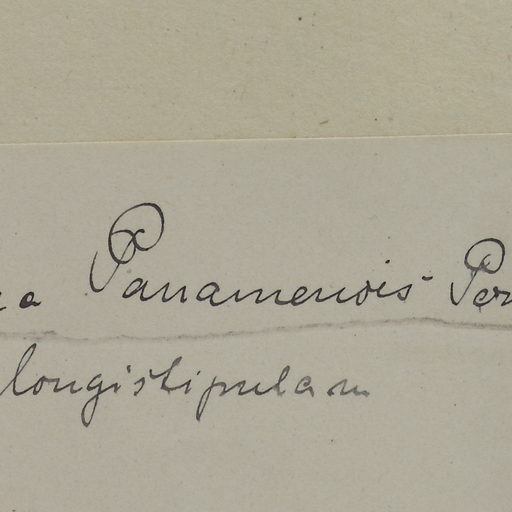 Panamensis
longistipulam